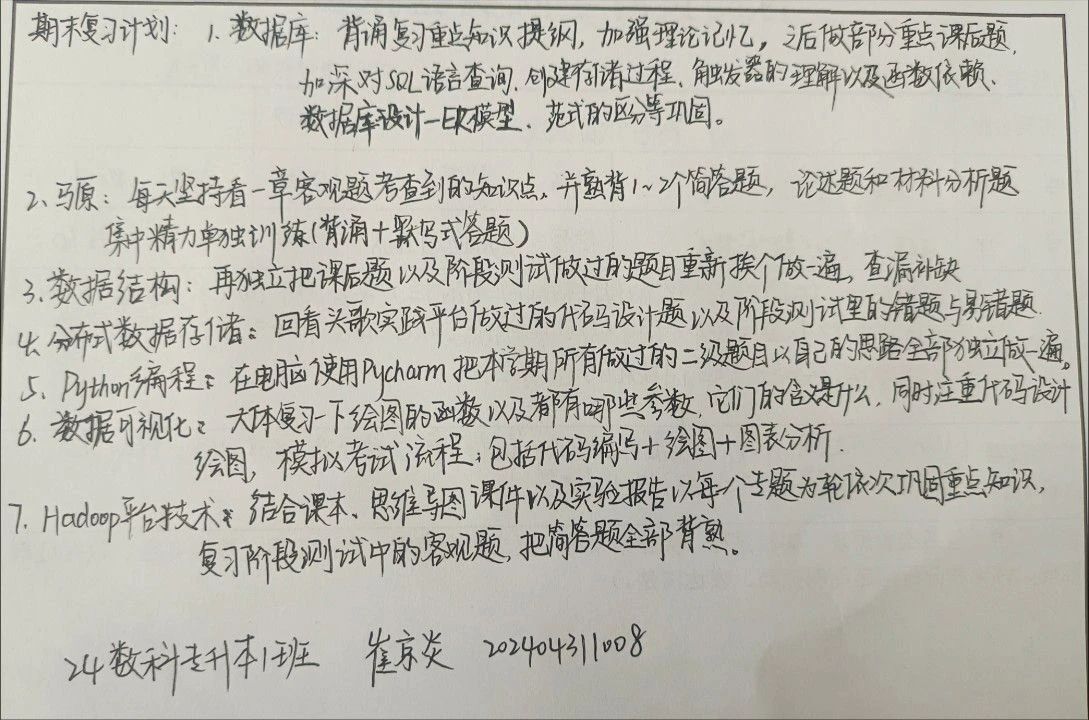 期末复习计划：1、数据库：背诵复习重点知识提纲，加强理论记忆，之后做部分重点课后题，
加深对SQL语言查询、创建存储过程、触发器的理解以及函数依赖、
数据库设计—ER模型、范式的区分等巩固。
2、马原：每天坚持看一章客观题考查到的知识点，并熟背1~2个简答题，论述题和材料分析题
集中精力单独训练(背诵+默写式答题)
3、数据结构：再独立把课后题以及阶段测试做过的题目重新挨个做一遍，查漏补缺
4、分布式数据存储：回看头歌实践平台做过的代码设计题以及阶段测试里的错题与易错题.
5、Python编程：在电脑使用Pycharm把本学期所有做过的二级题目以自己的思路全部独立做一遍。
6、数据可视化：大体复习一下绘图的函数以及都有哪些参数，它们的含义是什么，同时注重代码设计
绘图，模拟考试流程，包括代码编写+绘图+图表分析.
7、Hadoop平台技术：结合课本、思维导图课件以及实验报告以每个专题为轮依次巩固重点知识，
复习阶段测试中的客观题，把简答题全部背熟。
24数科专升本1班 崔京炎 202404311008